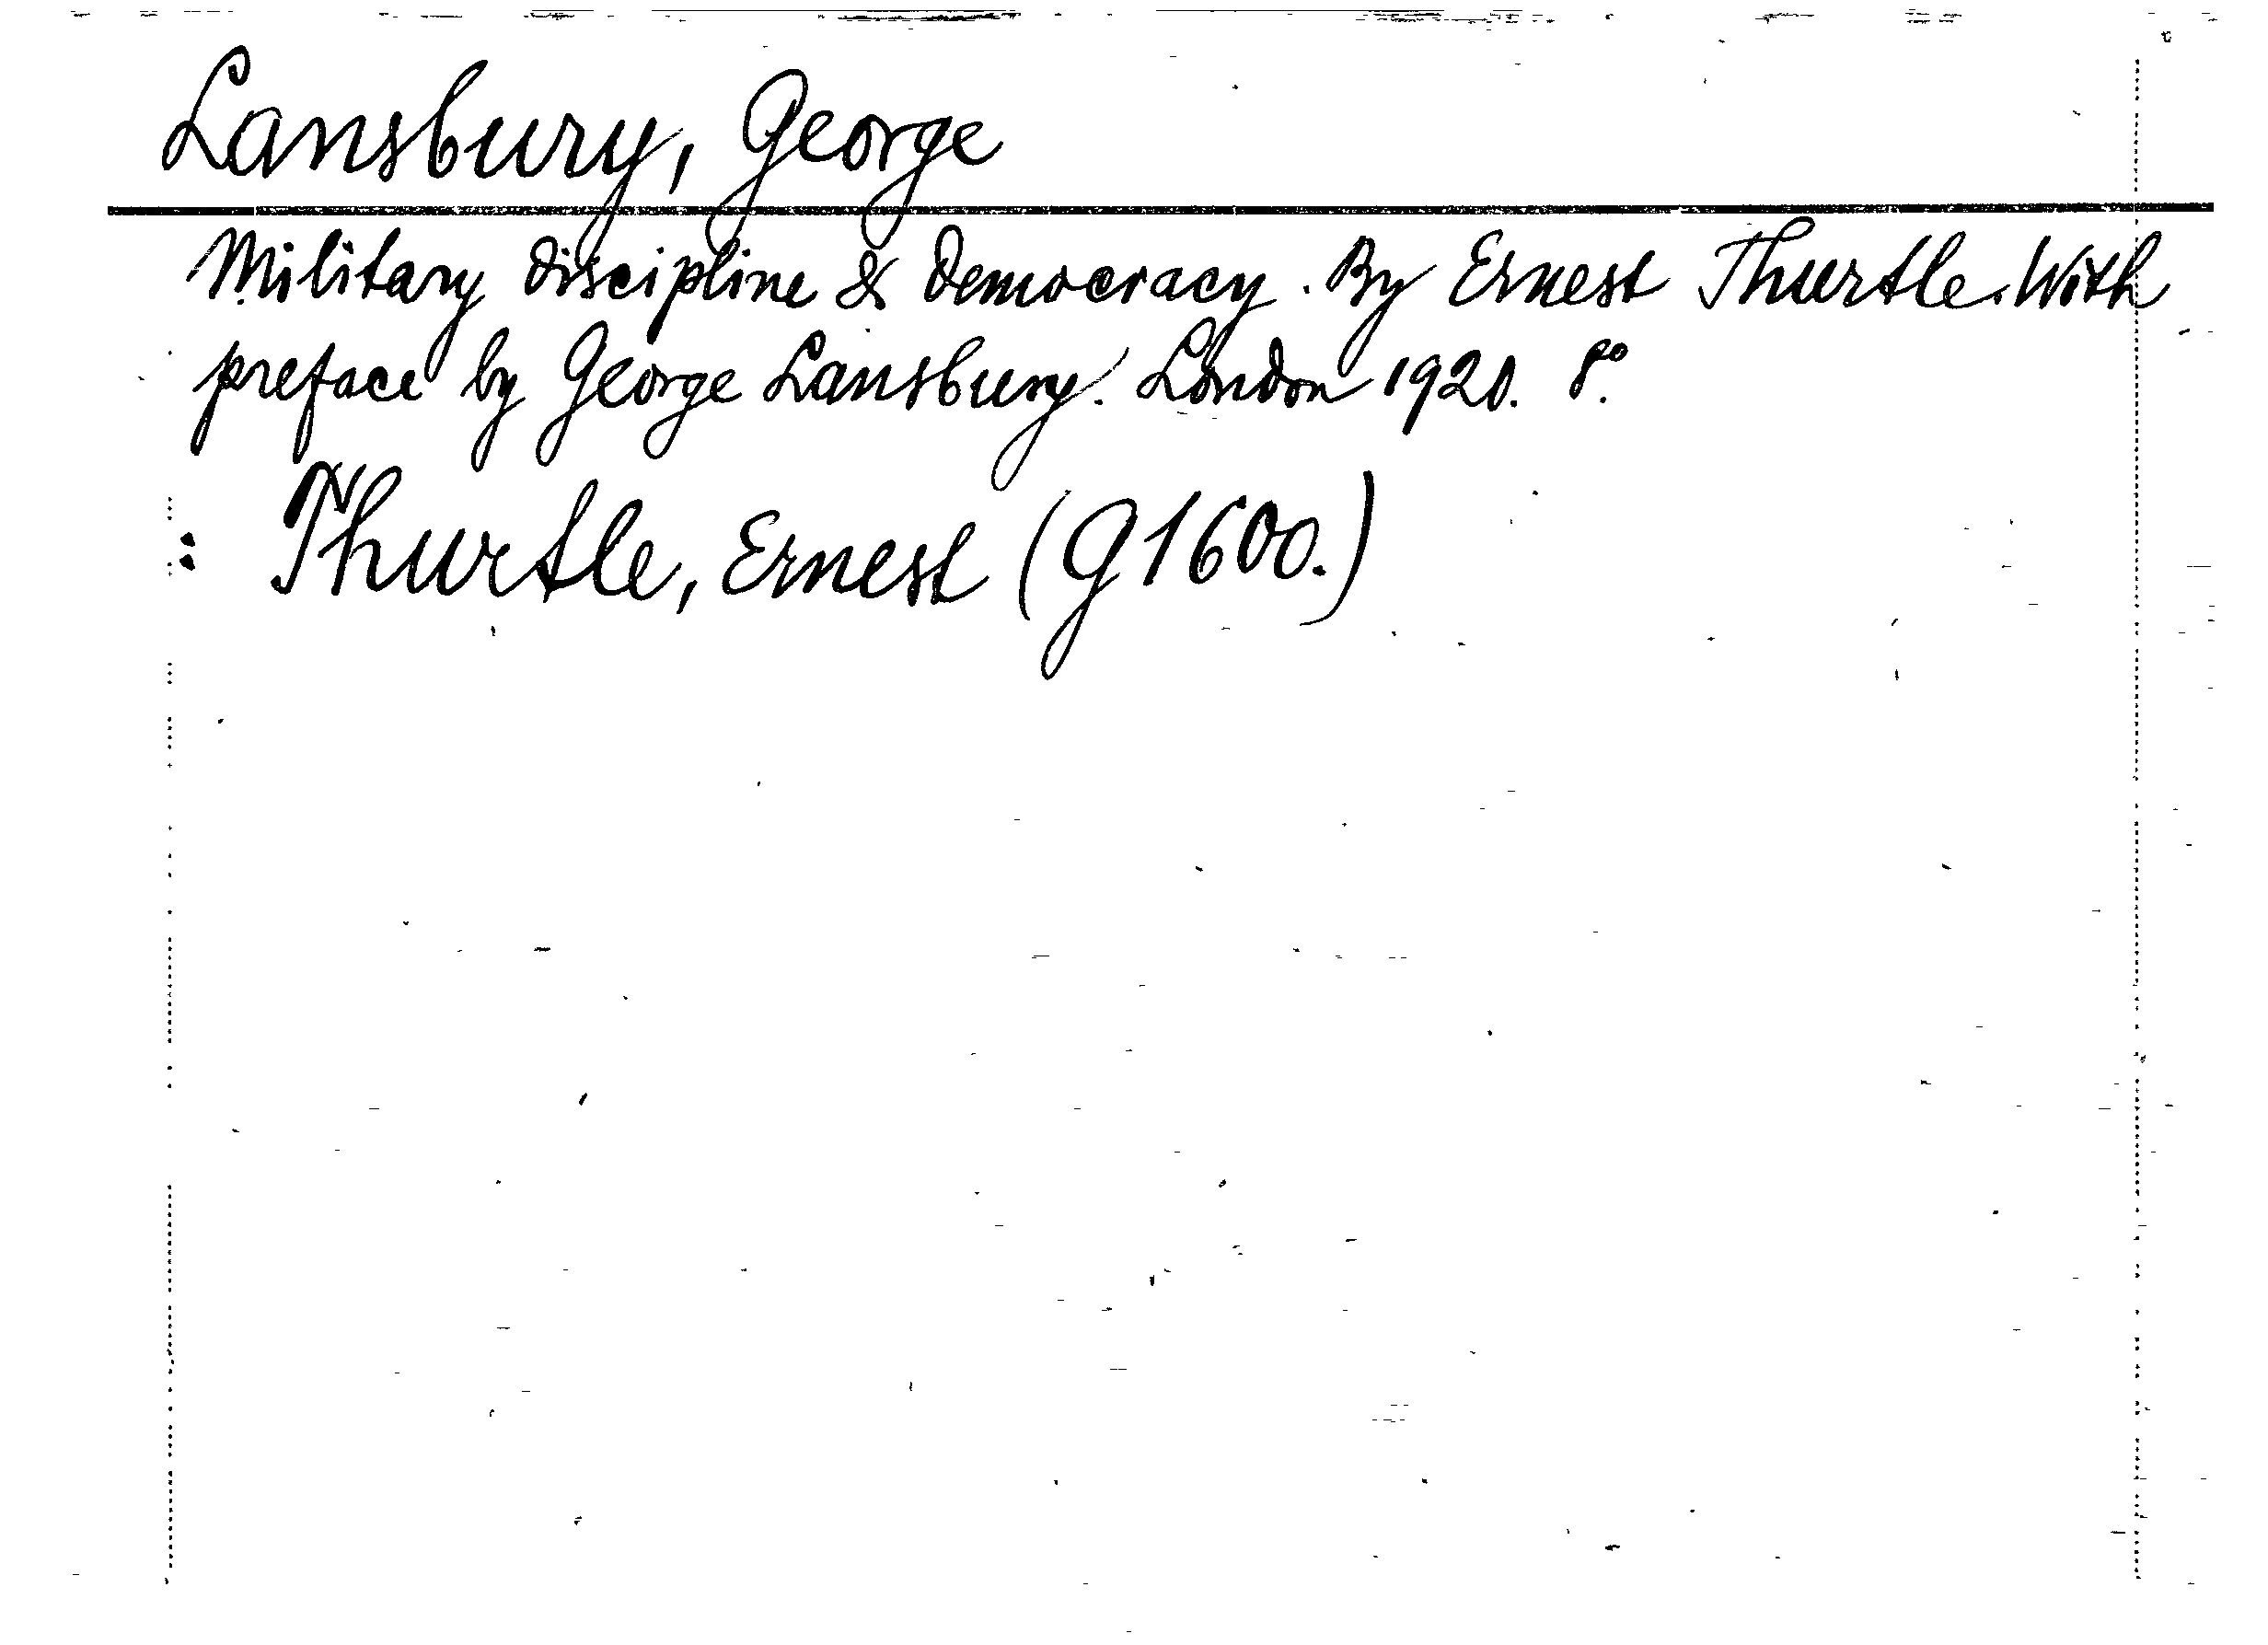 Lansbury, George
Military discipline & democracy. By Ernest Thurtle. With
preface by George Lansbury. London 1920. 8°.
: Thurtle, Ernest (G1600.)